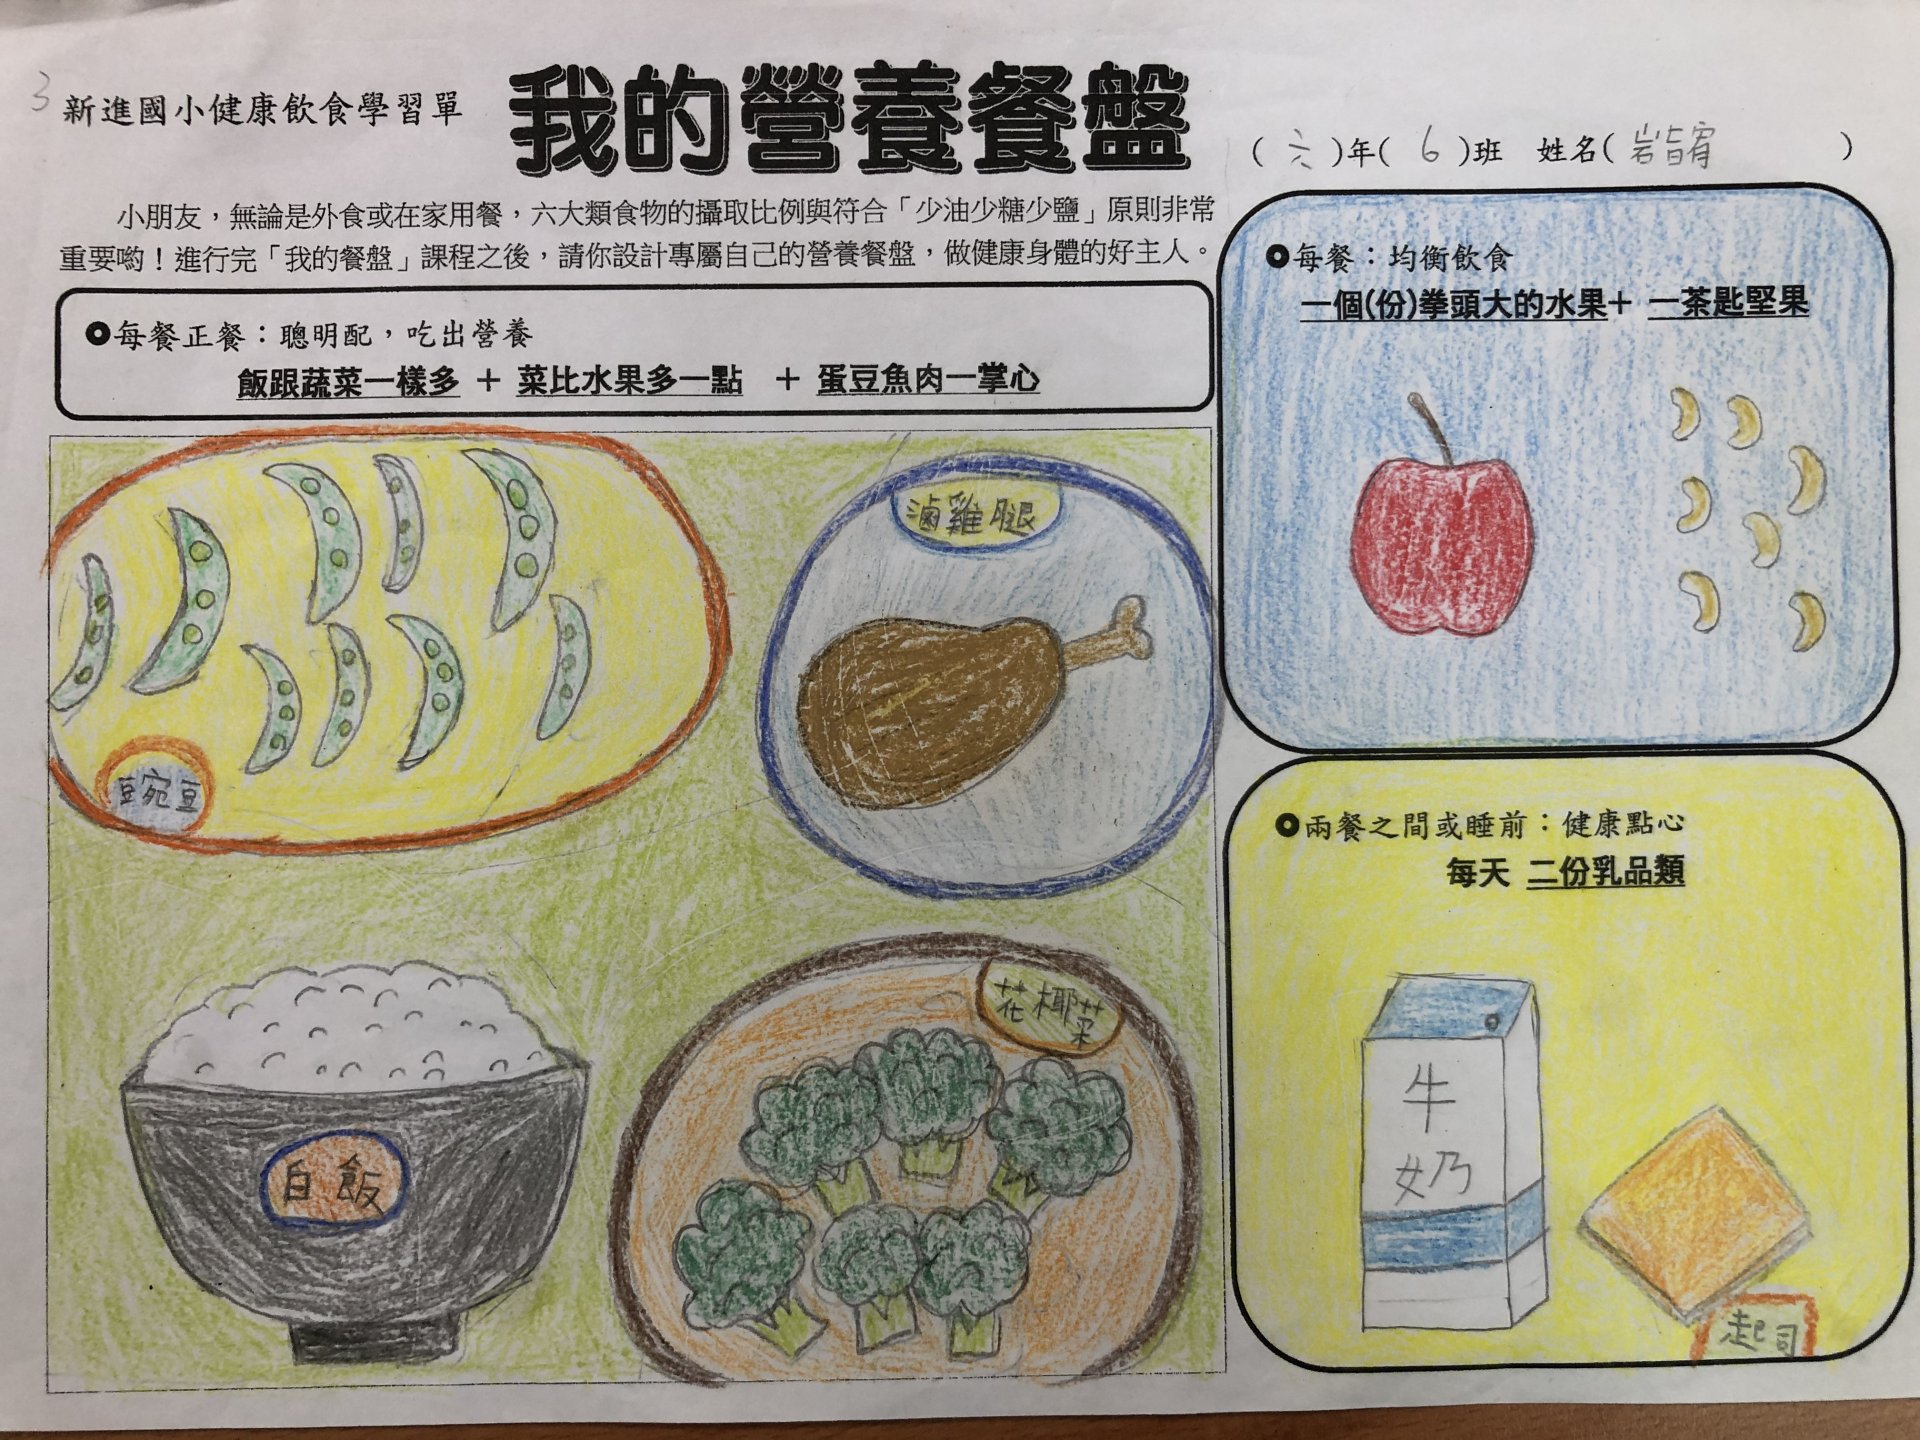 3
新進國小健康飲食學習單
我的營養餐盤
(六)年(6)班 姓名(岩皆宥)
小朋友，無論是外食或在家用餐，六大類食物的攝取比例與符合「少油少糖少鹽」原則非常
重要喲！進行完「我的餐盤」課程之後，請你設計專屬自己的營養餐盤，做健康身體的好主人。
每餐正餐：聰明配，吃出營養
飯跟蔬菜一樣多 + 菜比水果多一點 + 蛋豆魚肉一掌心
滷雞腿
豆宛豆
白飯
花椰菜
每餐：均衡飲食
一個(份)拳頭大的水果+ 一茶匙堅果
兩餐之間或睡前：健康點心
每天 二份乳品類
牛
奶
起司